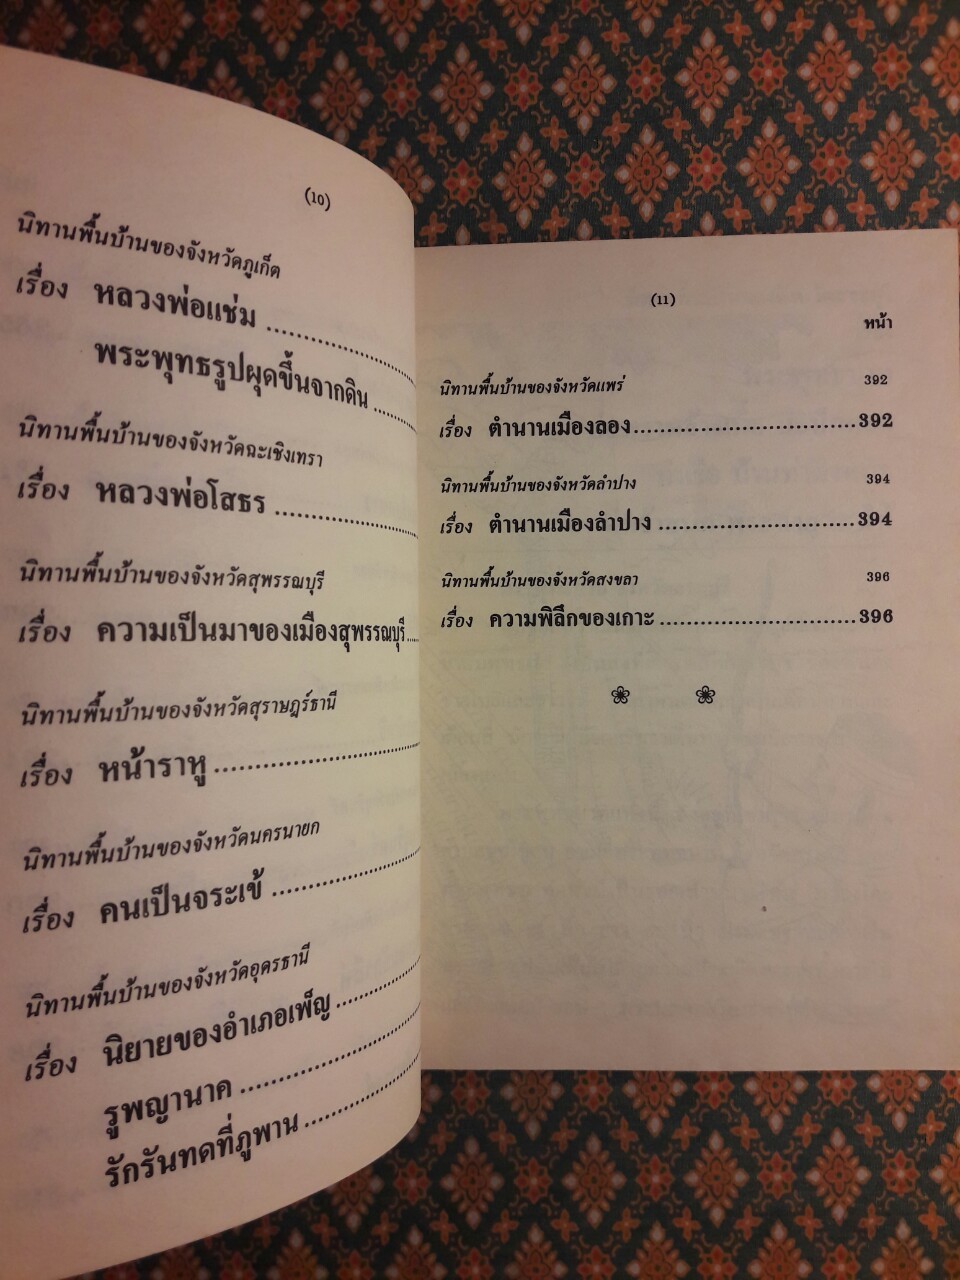 (10)
นิทานพื้นบ้านของจังหวัดภูเก็ต
เรื่อง หลวงพ่อแช่ม ........................
พระพุทธรูปผุดขึ้นจากดิน ........
นิทานพื้นบ้านของจังหวัดฉะเชิงเทรา
เรื่อง หลวงพ่อโสธร ........................
นิทานพื้นบ้านของจังหวัดสุพรรณบุรี
เรื่อง ความเป็นมาของเมืองสุพรรณบุรี.....
นิทานพื้นบ้านของจังหวัดสุราษฎร์ธานี
เรื่อง หน้าราหู ........................
นิทานพื้นบ้านของจังหวัดนครนายก
เรื่อง คนเป็นจระเข้ ........................
นิทานพื้นบ้านของจังหวัดอุดรธานี
เรื่อง นิยายของอำเภอเพ็ญ ................
รูพญานาค ........................
รักรันทดที่ภูพาน ........................
(11)
หน้า
นิทานพื้นบ้านของจังหวัดแพร่ 392
เรื่อง ตำนานเมืองลอง ................................ 392
นิทานพื้นบ้านของจังหวัดลำปาง 394
เรื่อง ตำนานเมืองลำปาง ............................ 394
นิทานพื้นบ้านของจังหวัดสงขลา 396
เรื่อง ความพิลึกของเกาะ ............................ 396